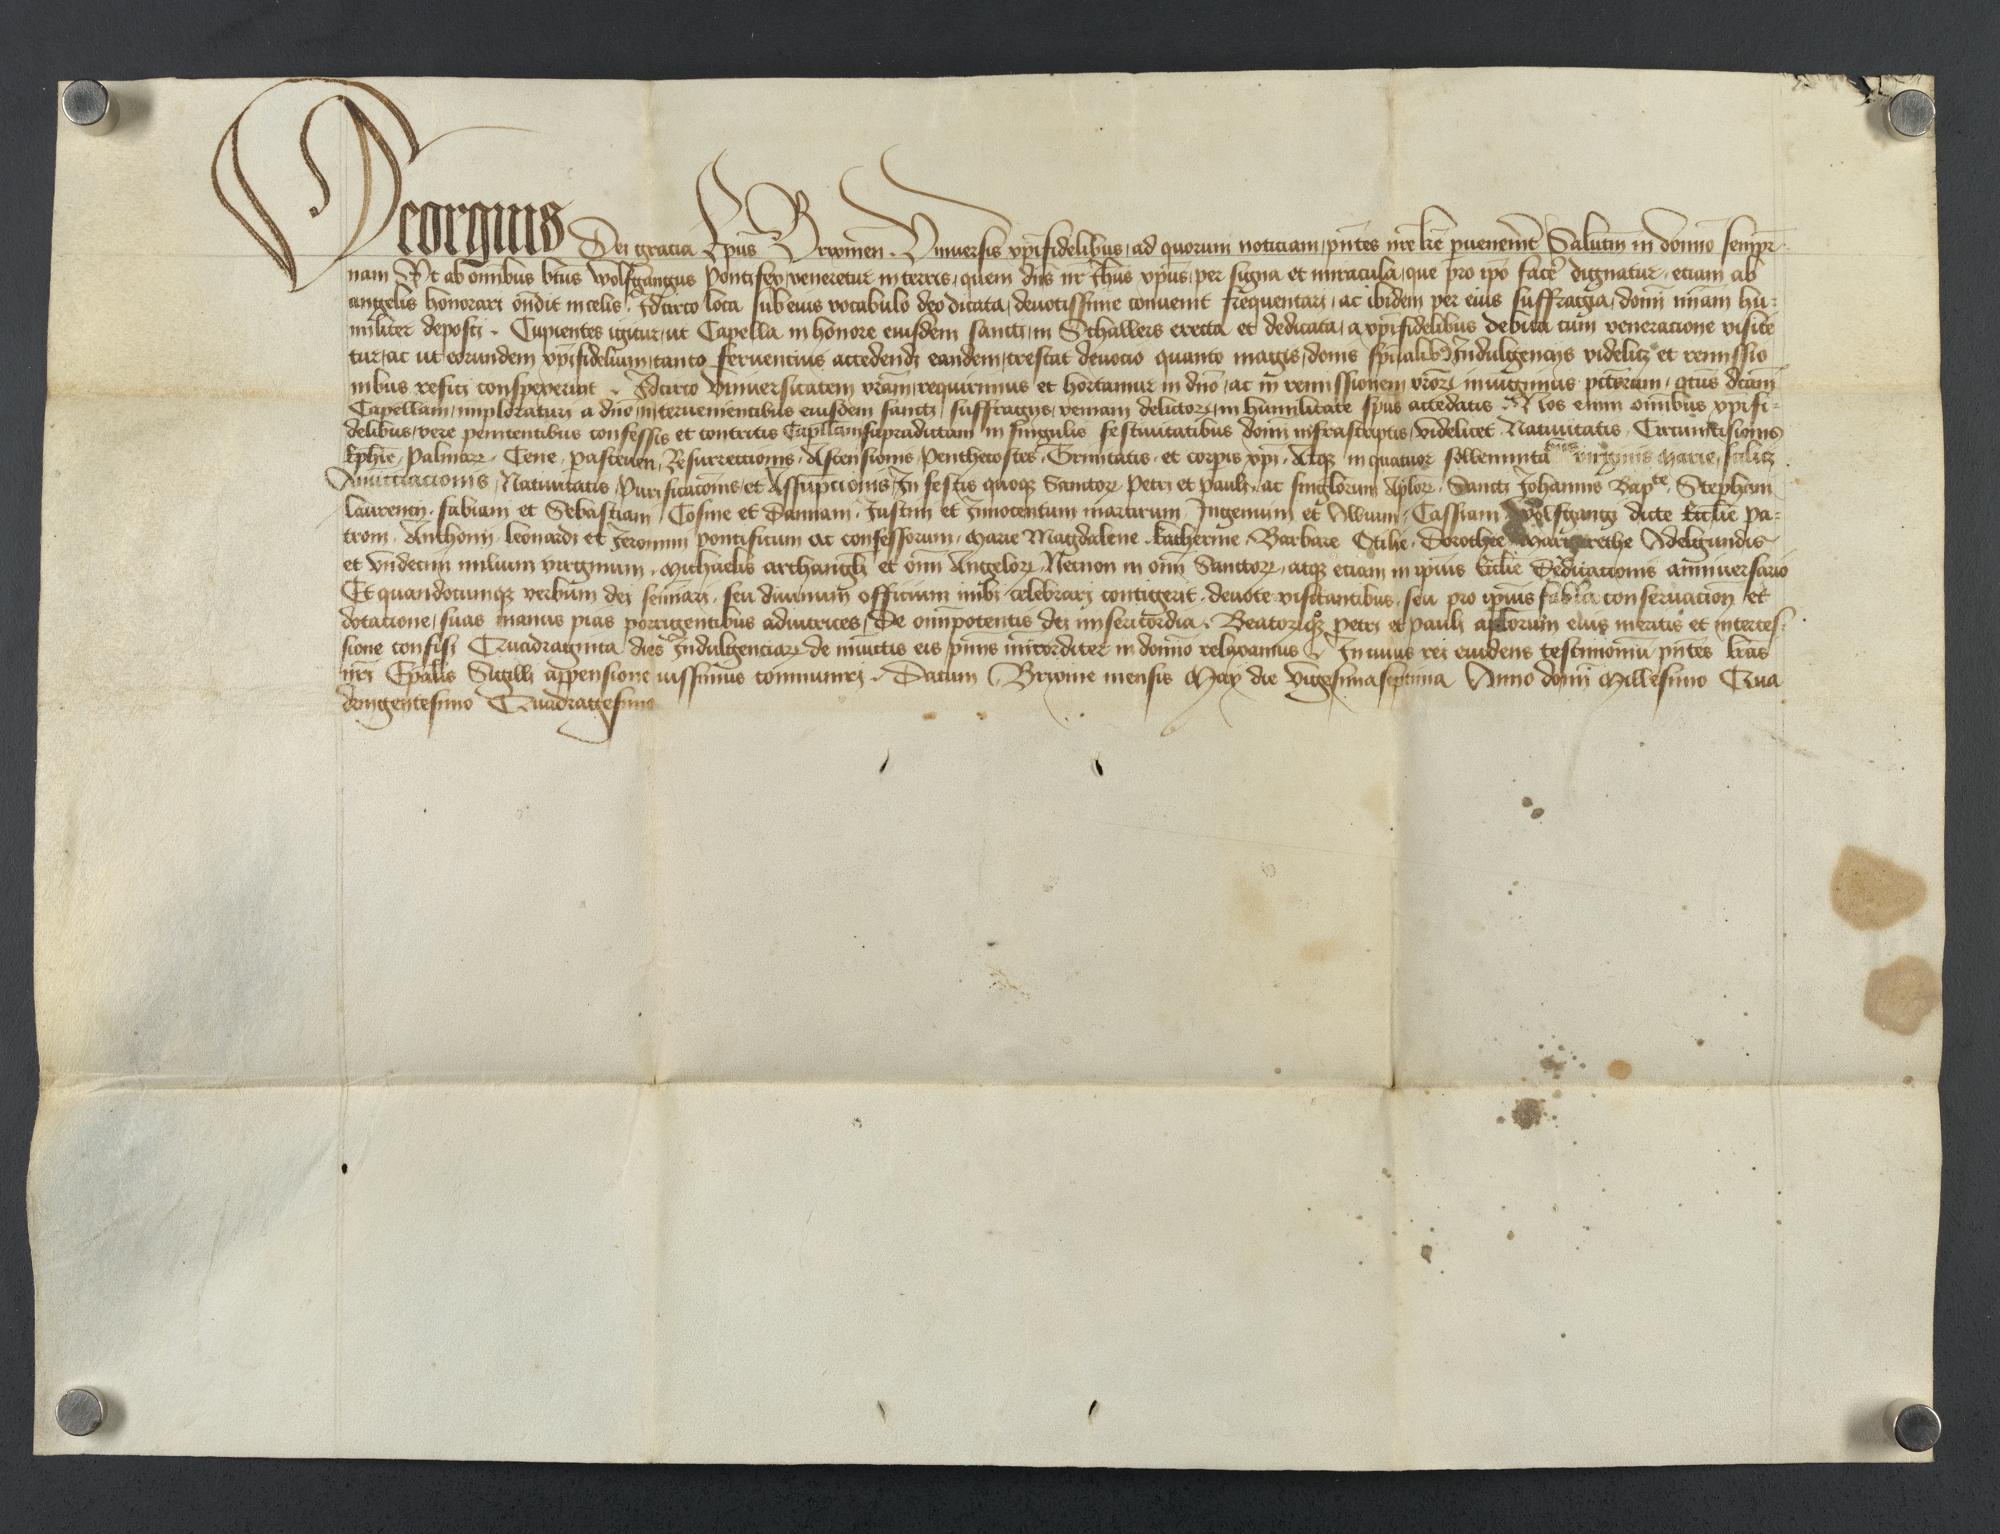 Georgius Dei gracia Eps Brixinen. Universis xpifidelibus, ad quorum noticiam, pntes nre lre pvenerint Salutem in domino sempr
nam Ut ab omnibus btus Wolfgangus Pontifex, veneretur in terris, quem dns nr Ihus xpus, per signa et miracula, que pro ipo facere dignatur, etiam ab
angelis honorari ondit in celis. Idcirco loca sub eius vocabulo deo dicata, devotissime convenit frequentari, ac ibidem per eius suffragia, domini mam hu-
militer deposci. Cupientes igitur, ut Capella in honore eiusdem sancti, in Schallers erecta et dedicata, a xpifidelibus debita cum veneracione visite
tur, ac ut eorundem xpifidelium, tanto fervencius accedendi eandem, crescat devocio quanto magis, donis spualibus Indulgencijs videlicz et remissio
nibus refici conspexerint. Idcirco Universitatem vram, requirimus et hortamur in dno, ac in remissionem vrorum iniungimus pctorum, qtus dcam
Capellam, imploraturi a dno, intervenientibus eiusdem sancti, suffragijs, veniam delictorum, in humilitate spus accedatis. Nos enim omnibus xpifi-
delibus, vere penitentibus confessis et contritis Capellam supradictam in singulis festivitatibus domini infrascriptis, videlicet Nativitatis, Circumcisionis
Ephie, Palmarum, Cene, pasceven, Resurrectionis, Ascensionis, Penthecostes, Trinitatis, et corpis xpi, Atque in quatuor sollemnita virginis Marie, scilicz
Annuncciacionis, Nativitatis, Purificacionis, et Assupcionis, In festis quoque Sanctorum Petri et Pauli, ac singlorum Aplorum, Sancti Johannis Bapte, Stephani
laurencij, fabiani et Sebastiani, Cosme et Damiani, Justini et Innocentum martirum, Ingenuini et Albuini, Cassiani Wolfgangi dicte Ecclie pa-
troni, Anthonij, leonardi et Jeronimi pontificum ac confessorum, Marie Magdalene, katherine, Barbare Otilie, Dorothee Margarethe Adelgundis
et Undecim milium virginum, Michaelis archangeli et omni Angelorum, Necnon in omni Sanctorum, atque etiam in ipius Ecclie Dedicacionis anniversario
Et quandocumque verbum dei seminari, seu divinum officium inibi celebrari contigerit, devote visitantibus, seu pro ipius fabrica conservacion et
dotacione, suas manus pias porrigentibus adiutrices, De omnipotentis dei misericordia, Beatorumque Petri et Pauli aplorum eius meritis et interces-
sione confisi Quadraginta dies Indulgenciarum de iniunctis eis pnijs micorditer in domino relaxamus In cuius rei evidens testimonium pntes lras
nri Epalis Sigilli appensione iussimus communiri. Datum Brixine mensis Maij die Vigesimaseptima Anno domini Millesimo Qua
dringentesimo Quadragesimo